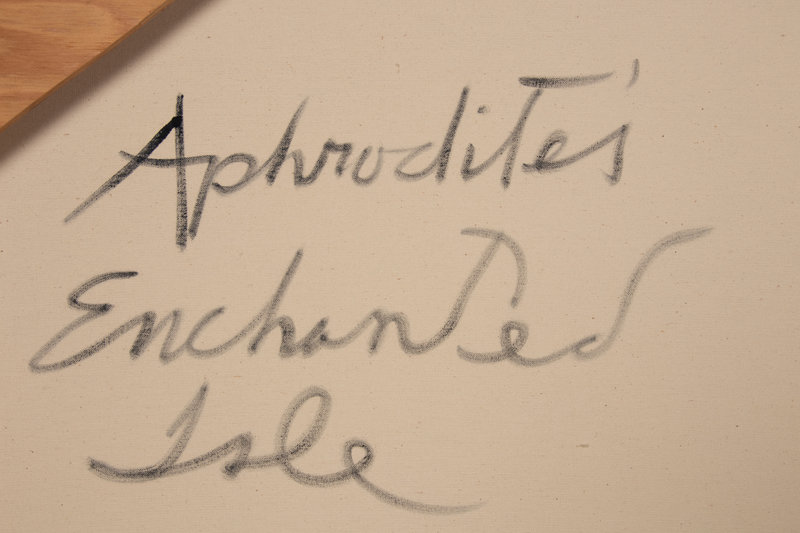 Aphrodite's
Enchanted
Isle